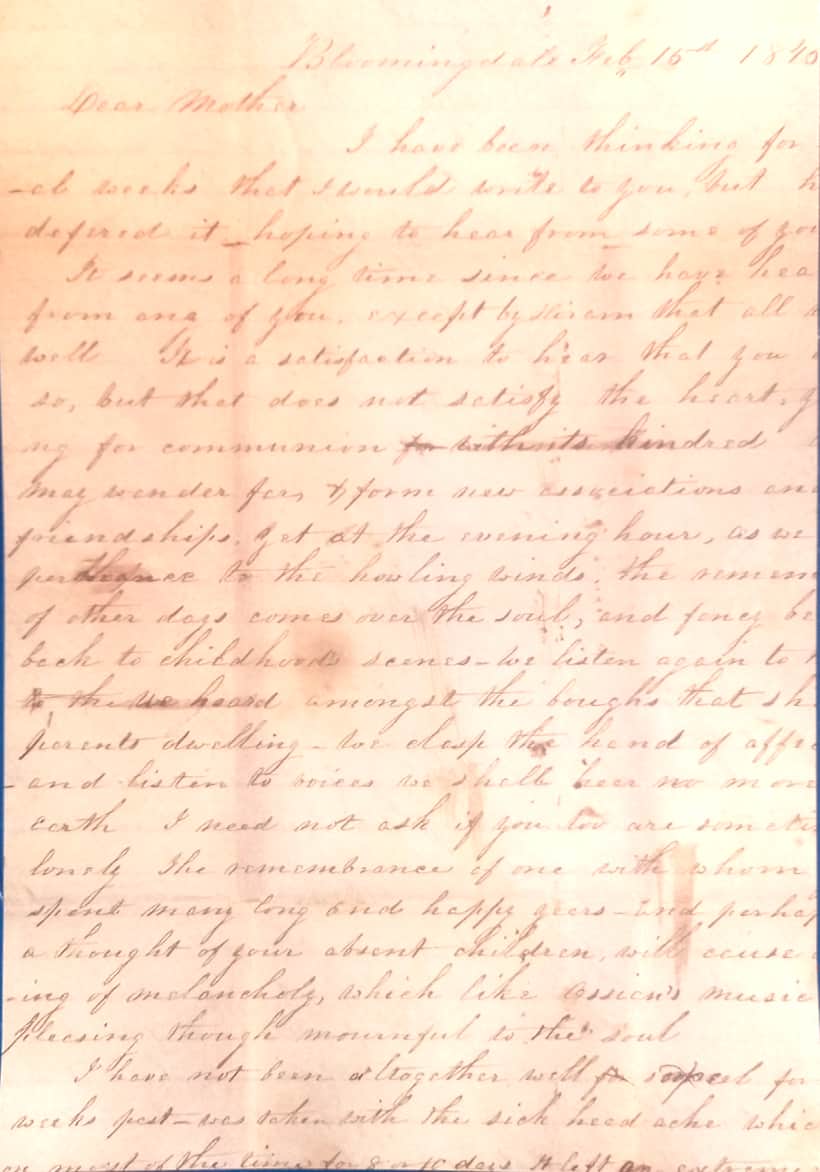 Bloomingdale Feb 15th 1840
Dear Mother
I have been thinking for
-al weeks that I would write to you, but h
defered it - hoping to hear from some of you
It seems a long time since we have hea
from any of you, except by Hiram that all
well It is a satisfaction to hear that you
so, but that does not satisfy the heart, y
ng for communion for with its kindred
may wander far, & form new associations and
friendships, yet at the evening hour, as we
perchance to the howling winds, the remem
of other days comes over the soul, and fancy be
back to childhood's scenes - we listen again to
to the we heard amongst the boughs that sh
parents dwelling - we clasp the hand of affec
- and listen to voices we shall hear no more
earth I need not ask if you too are someti
lonely The remembrance of one with whom
spent many long and happy years - and perhap
a thought of your absent children, will cause
-ing of melancholy, which like Ossian's music
pleasing though mournful to the soul
I have not been altogether well for for
weeks past - was taken with the sick head ache whic
on most of the time for 8 or 10 days It left an extreme